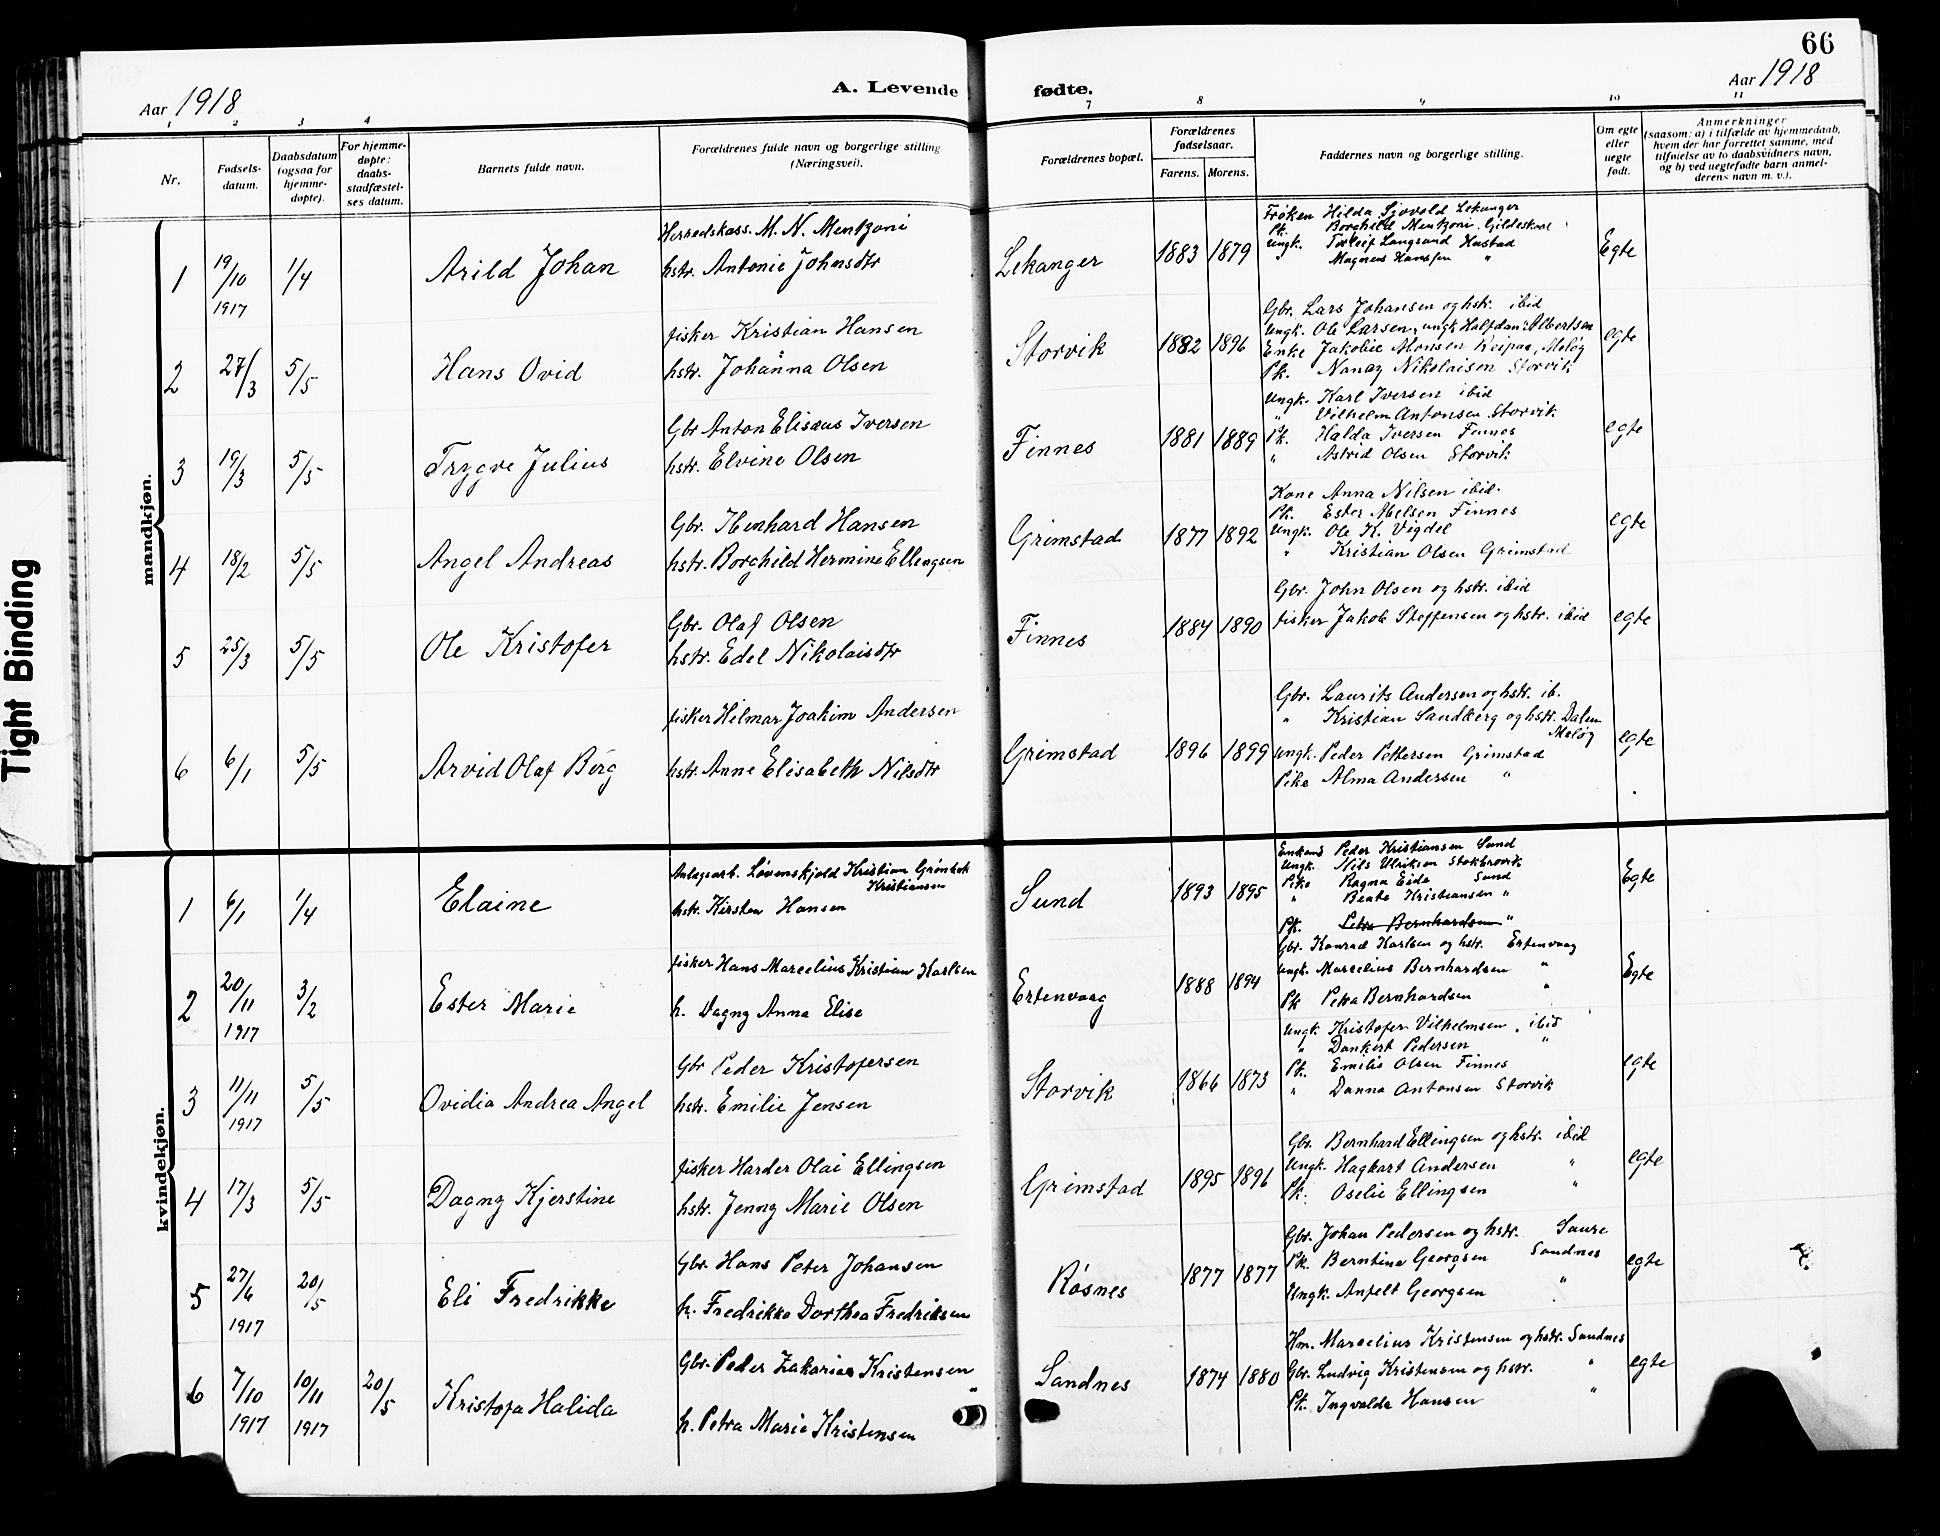 66
Aar 1918
A. Levende
fødte.
Aar 1918
1 2 3 4 7 8 9 10 11
Nr.
Fødsels-
datum.
Daabsdatum
(ogsaa for
hjemme-
døpte).
For hjemme-
døpte:
daabs-
stadfæstel-
ses datum.
Barnets fulde navn.
Forældrenes fulde navn og borgerlige stilling
(Næringsvei).
Forældrenes bopæl.
Forældrenes
fødselsaar.
Farens. Morens.
Faddernes navn og borgerlige stilling.
Om egte
eller
uegte
født.
Anmerkninger
(saasom: a) i tilfælde av hjemmedaab,
hvem der har forrettet samme, med
tilføielse av to daabsvidners navn,
og b) ved uegtefødte barn anmel-
derens navn m. v.).
Tight Binding
mandkjøn.
1 19/10 1917 1/4 Arild Johan
Herredskass. M. N. Mentzoni
hstr. Antonie Johnsdtr
Lekanger 1883 1879
Frøken Hilda Sjovold Lekanger
Pk. Borghild Mentzoni Gildeskaal
Ungk. Torleif Langsund Hustad
Magnus Hanssen "
Egte
2 27/3 5/5 Hans Ovid
fisker Kristian Hansen
hstr. Johanna Olsen
Storvik 1882 1896
Gbr. Lars Johansen og hstr. ibid
Ungk. Ole Larsen, ungk Halfdan Albertsen
Enke Jakobie Monsen Reipaa, Meløg
Pk. Nancy Nikolaisen Storvik
egte
3 19/3 5/5 Trygve Julius
Gbr Anton Elisæus Iversen
hstr. Elvine Olsen
Finnes 1881 1889
Ungk. Karl Iversen ibid
" Vilhelm Antonsen Storvik
Pk. Halda Iversen Finnes
" Astrid Olsen Storvik
egte
4 18/2 5/5 Angel Andreas
Gbr. Hansen
hstr. Borghild Hermine Ellingsen
Grimstad 1877 1892
Kone Anna Nilsen ibid.
Pk. Ester Abelsen Finnes
Ungk. Ole K. Vigdel
" Kristian Olsen Grimstad
egte
5 25/3 5/5 Ole Kristofer
Gbr. Olaf Olsen
hstr. Edel Nikolaisdtr
Finnes 1884 1890
Gbr. John Olsen og hstr. ibid
fisker Jakob Steffensen og hstr. ibid
egte
6 6/1 5/5 Arvid Olaf Berg
fisker Hilmar Joakim Andersen
hstr. Anne Elisabeth Nilsdtr
Grimstad 1896 1899
Gbr. Laurits Andersen og hstr. ib.
" Kristian Sandberg og hstr. Dalen
Meløg
Ungk. Peder Pettersen Grimstad
Pike Alma Andersen "
egte
kvindekjøn.
1 6/1 1/4 Elaine
Anlagsarb. Løvenskjold Kristian Grønbek
Kristiansen
hstr. Kirsten Hansen
Sund 1893 1895
Enkem Peder Kristiansen Sund
Ungk. Nils Ulriksen
Pike Ragna Eide Sund
" Beate Kristiansen "
Pk. Petra Bernhardsen "
Egte
2 20/11 1917 3/2 Ester Marie
fisker Hans Marcelius Kristian Karlsen
h. Dagny Anna Elise
Ertenvaag 1888 1894
Gbr. Konrad Karlsen og hstr. Ertenvaag
Ungk. Marcelius Bernhardsen "
Pk Petra Bernhardsen "
Egte
3 11/11 1917 5/5 Ovidia Andrea Angel
Gbr Peder Kristofersen
hstr. Emilie Jensen
Storvik 1866 1873
Ungk. Kristofer Vilhelmsen, ibid
" Dankert Pedersen "
Pk. Emilie Olsen Finnes
" Danna Antonsen Storvik
egte
4 17/3 5/5 Dagny Kjerstine
fisker Harder Olai Ellingsen
hstr. Jenny Marie Olsen
Grimstad 1895 1896
Gbr. Bernhard Ellingsen og hstr. ibid
Ungk. Hagbart Andersen "
Pk. Oselie Ellingsen "
egte
5 27/6 1917 20/5 Eli Fredrikke
Gbr. Hans Peter Johansen
h. Fredrikke Dorthea Fredriksen
Røsnes 1877 1877
Gbr. Johan Pedersen og hstr. Saura
Pk. Berntine Georgsen Sandnes
Ungk. Anfelt Georgsen "
egte
6 7/10 1917 10/11 1917 20/5 Kristofa Halida
Gbr. Peder Zakarias Kristensen
h. Petra Marie Kristensen
Sandnes 1874 1880
Hm. Marcelius Kristensen og hstr. Sandnes
Gbr. Ludvig Kristensen og hstr. "
Pk. Ingvalda Hansen "
egte